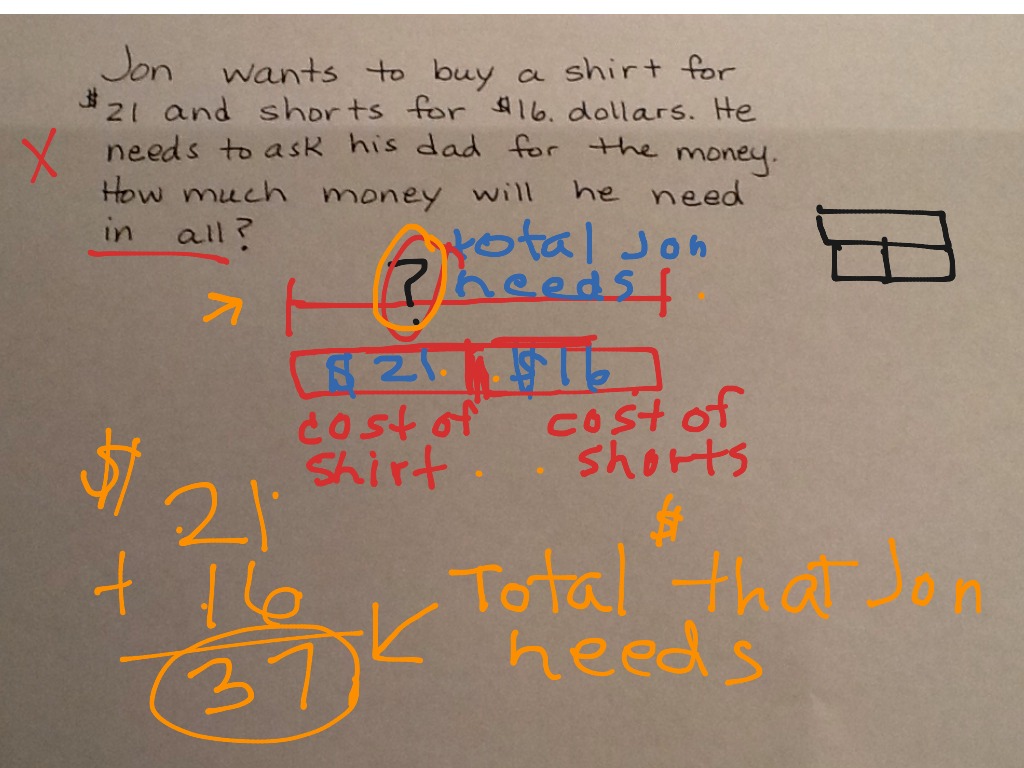 Jon wants to buy a shirt for
$21 and shorts for $16. dollars. He
X
needs to ask his dad for the money.
How much money will he need
in all?
? total Jon
needs
$21 $16
cost of cost of
shirt shorts
$
21
+ 16
37
$
Total that Jon
needs